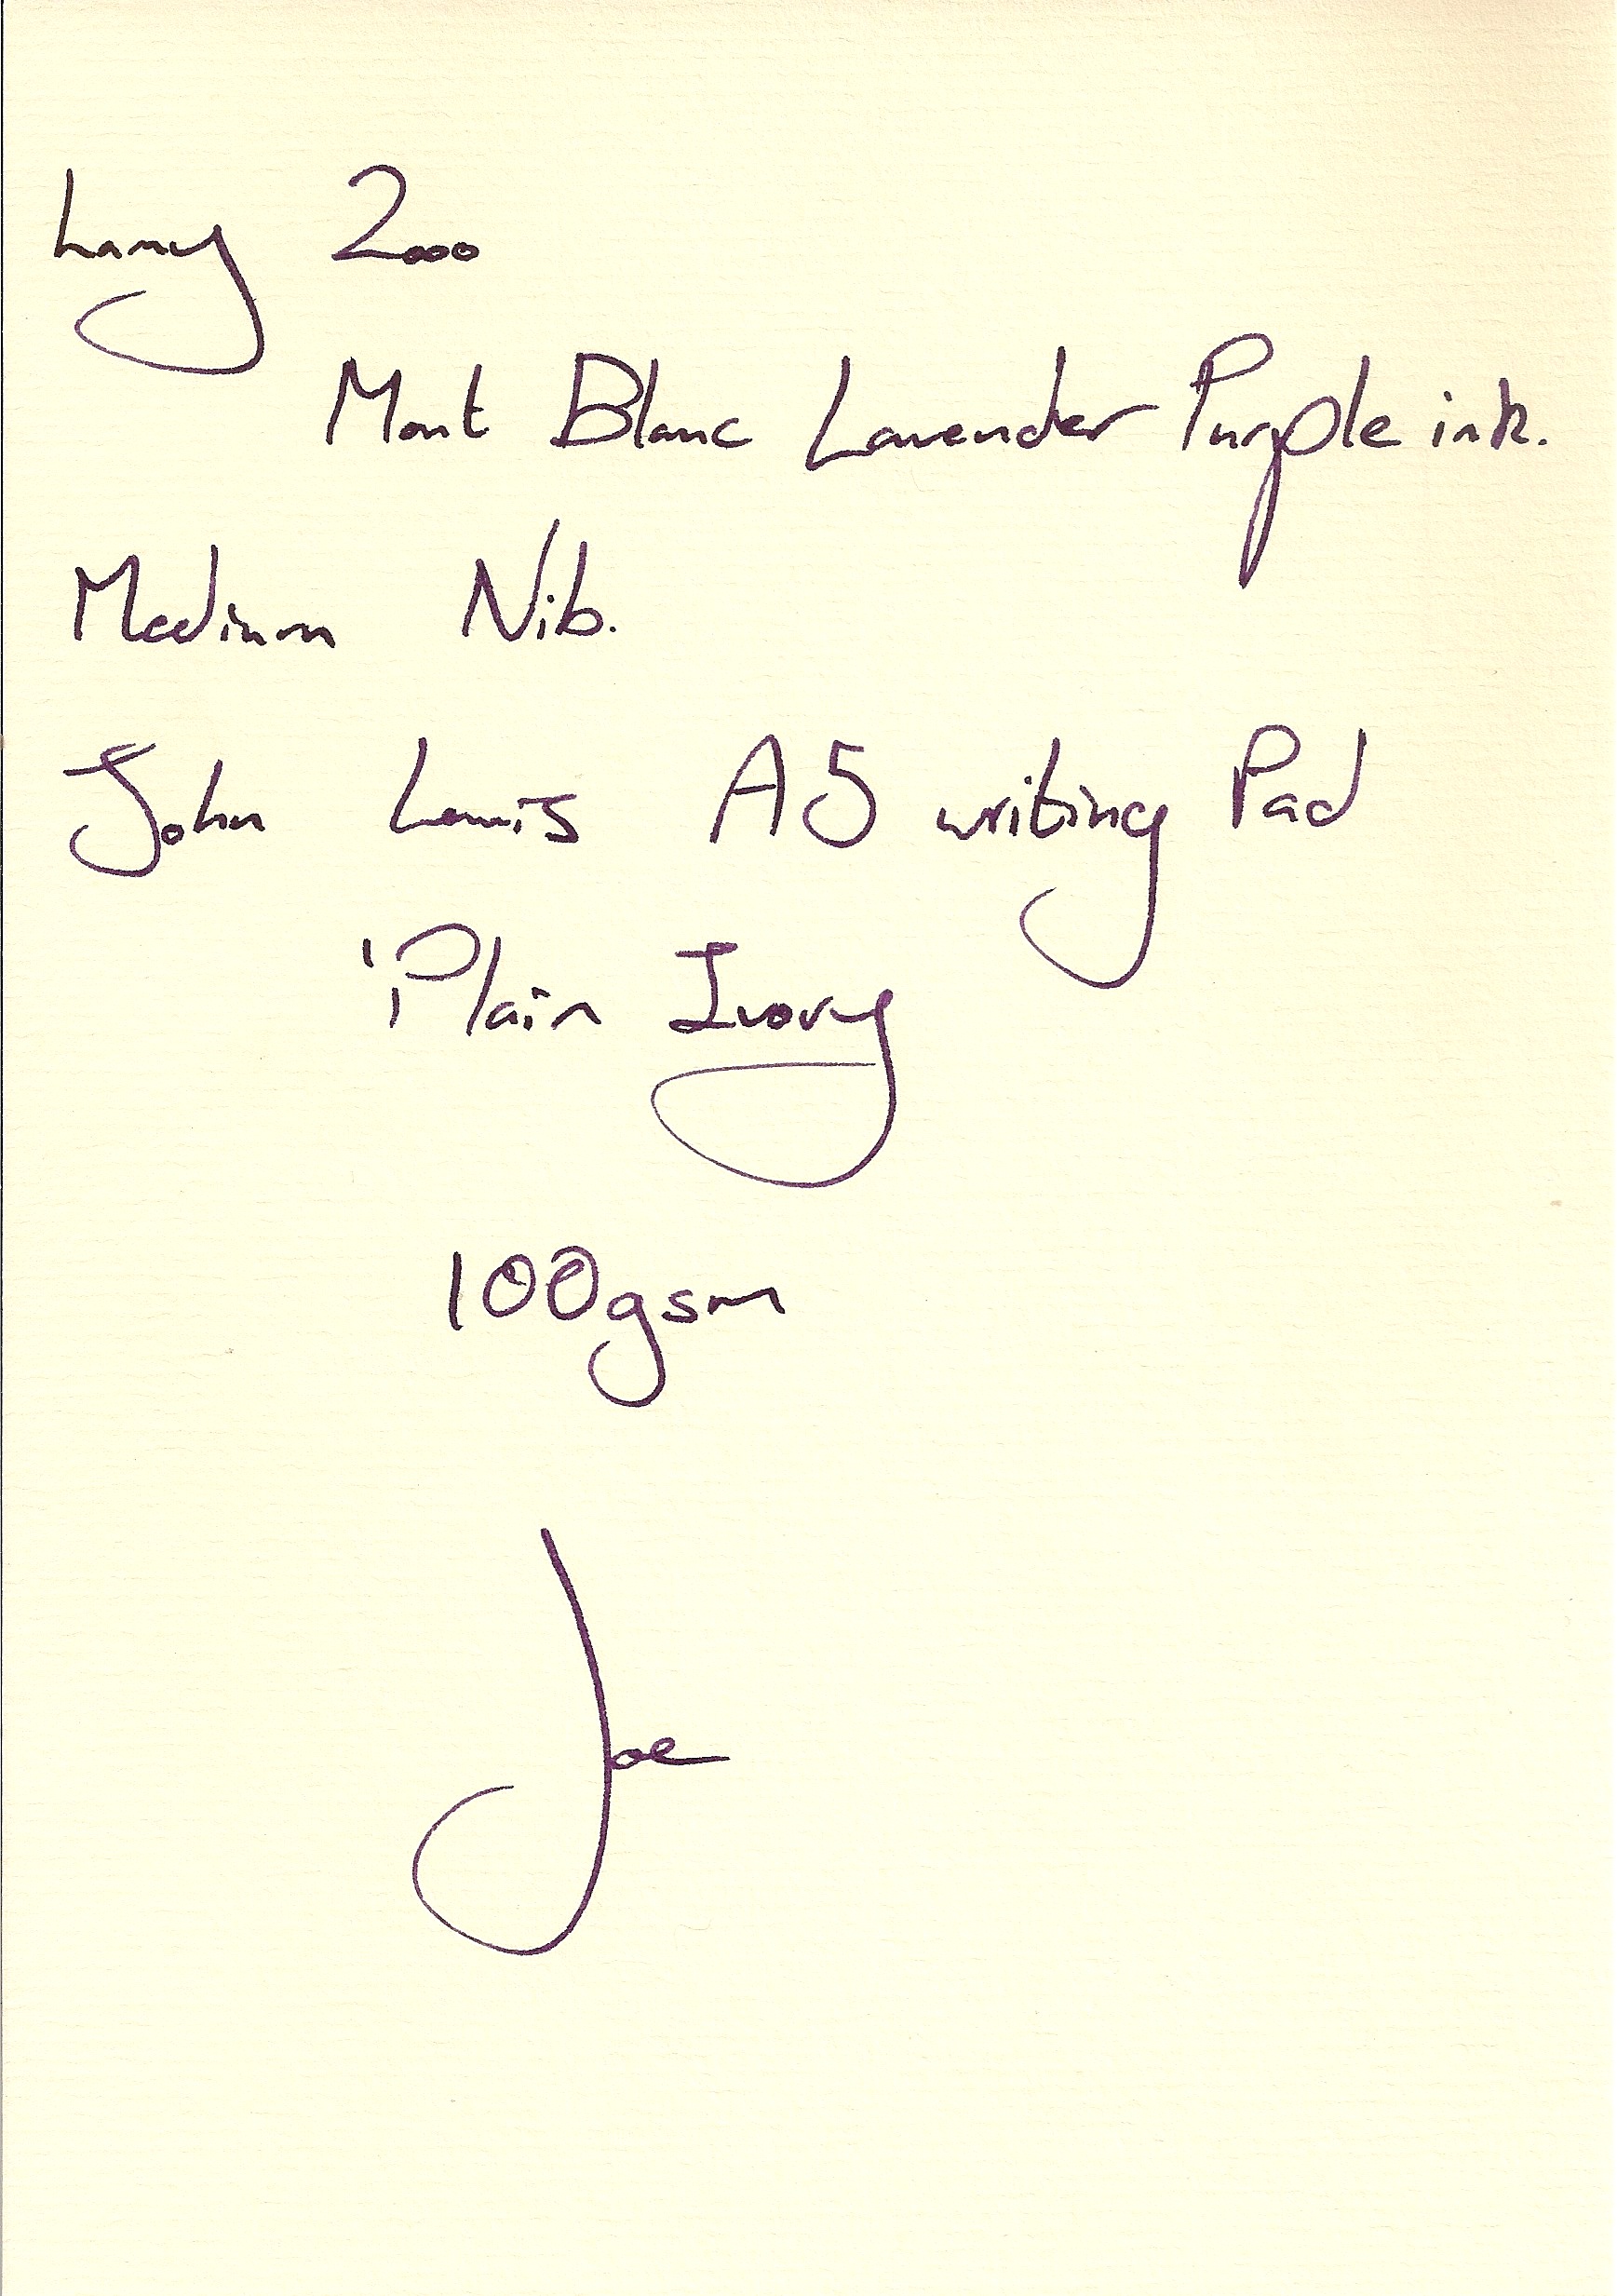 Lamy 2000
Mont Blanc Lavender Purple ink.
Medium Nib.
John Lewis A5 writing Pad
'Plain Ivory
100gsm
Joe